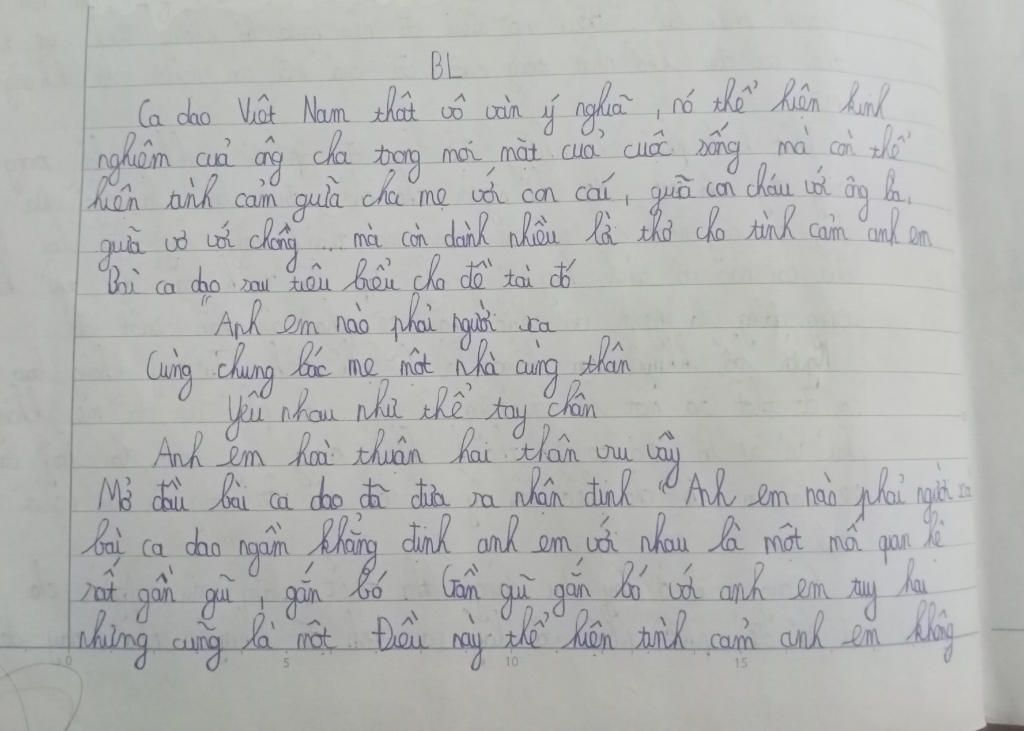 BL
Ca dao Việt Nam thật vô vàn ý nghĩa, nó thể hiện kinh
nghiệm của ông cha trong mọi mặt của cuộc sống mà còn thể
hiện tình cảm giữa cha mẹ với con cái, giữa con cháu với ông bà,
giữa vợ với chồng... mà còn dành nhiều lời thơ cho tình cảm anh em
Bài ca dao sau tiêu biểu cho đề tài đó
"Anh em nào phải người xa
Cùng chung bác mẹ một nhà cùng thân
Yêu nhau như thể tay chân
Anh em hoà thuận hai thân vui vầy
Mở đầu bài ca dao đã đưa ra nhận định "Anh em nào phải người xa
bài ca dao ngầm khẳng định anh em với nhau là một mối quan hệ
rất gần gũi, gắn bó Gần gũi gắn bó với anh em tuy hai
nhưng cũng là một. Điều này thể hiện tình cảm anh em không
0 5 10 15